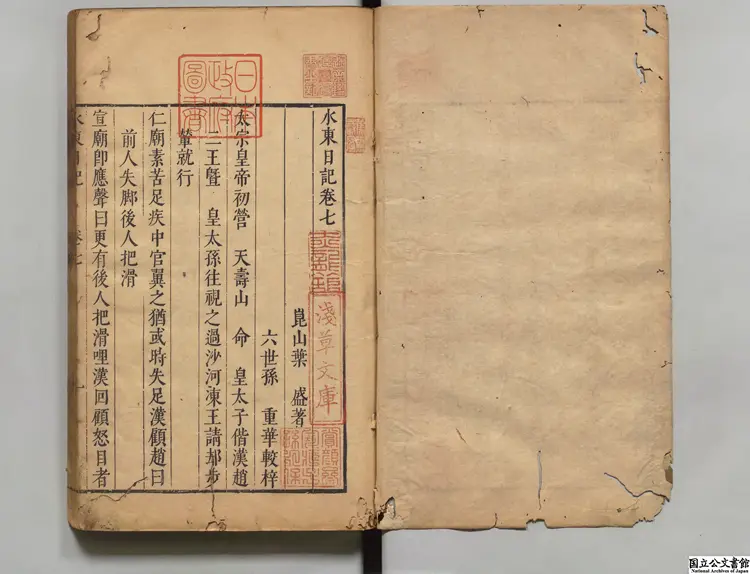 水東日記卷七
崑山葉　盛著
六世孫　重華較梓
太宗皇帝初營　天壽山　命　皇太子偕漢趙
二王曁　皇太孫往視之過沙河凍王請却步
輦就行
仁廟素苦足疾中官翼之猶或時失足漢顧趙曰
前人失脚後人把滑
宣廟卽應聲曰更有後人把滑哩漢回顧怒目者
水東日記　卷七
日本
政府
圖書
淺草文庫
国立公文書館
National Archives of Japan